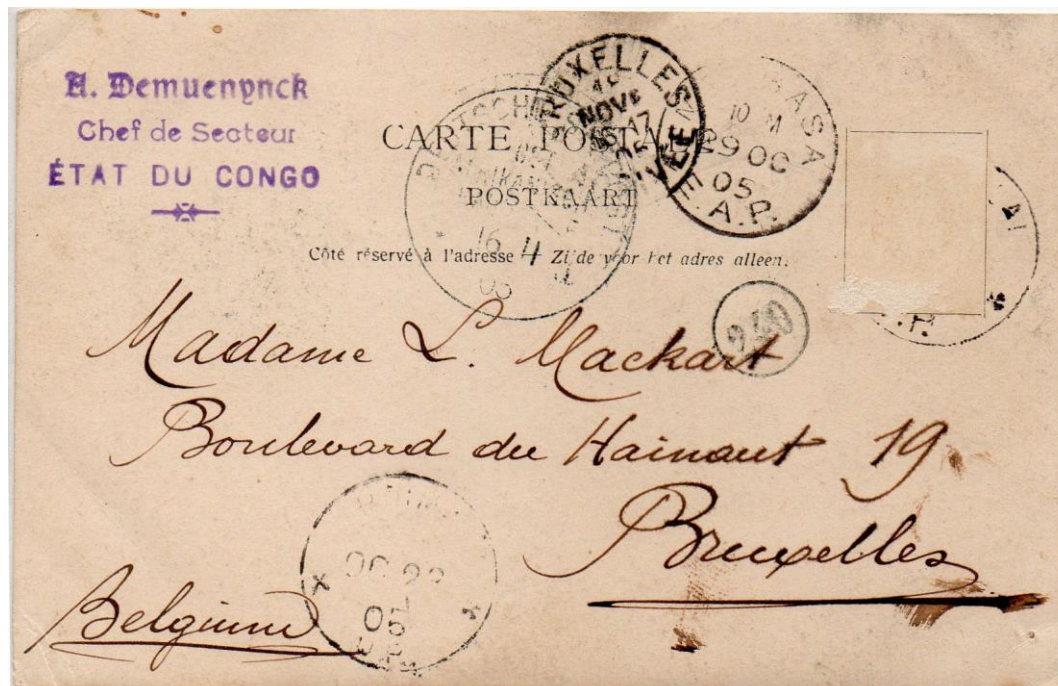 A. Demuenynck
Chef de Secteur
ÉTAT DU CONGO
CARTE POSTALE
POSTKAART
Côté réservé à l'adresse
Zijde voor het adres alleen.
BRUXELLES
NOVE
BASA
10 M
29 OC
05
E.A.P.
Madame L. Mackart
Boulevard du Hainaut 19
Bruxelles
OC 22
05
Belgium